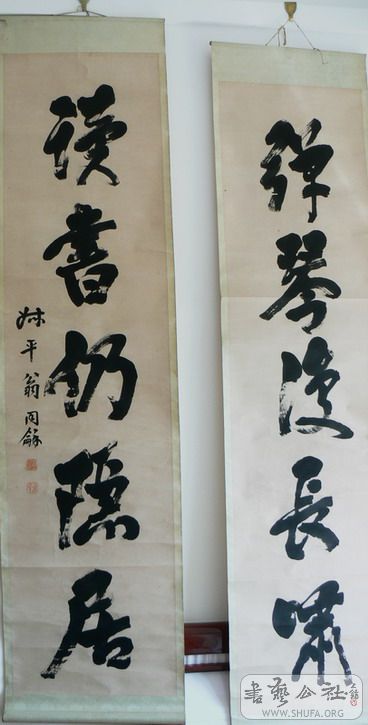 彈琴復長嘯
讀書仍隱居
叔平翁同龢
書藝公社
WWW.SHUFA.ORG